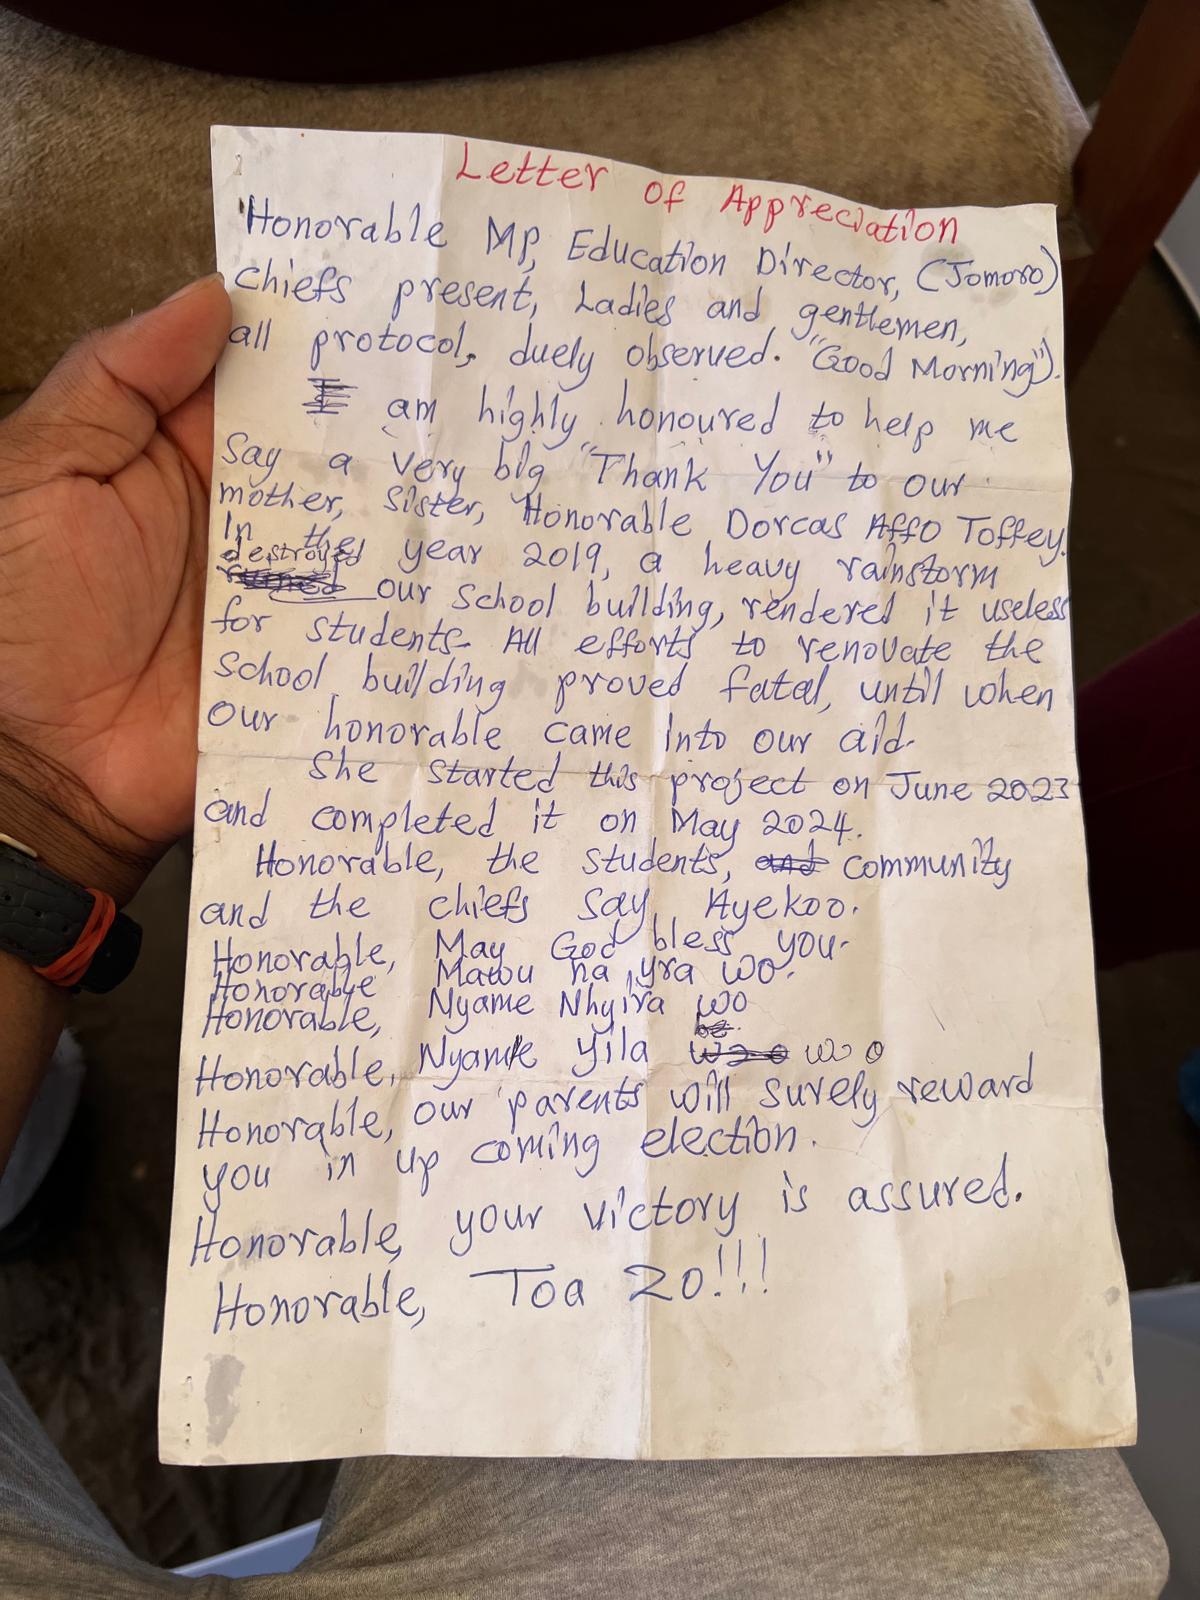 Letter of Appreciation
Honorable MP, Education Director, (Jomoro)
Chiefs present, Ladies and gentlemen,
all protocol, duely observed. "Good Morning").
I am highly honoured to help me
Say a very big "Thank You" to our
mother, Sister, Honorable Dorcas Affo Toffey.
In the year 2019, a heavy rainstorm
destroyed
ruined our school building, rendered it useless
for students. All efforts to renovate the
school building proved fatal, until when
our honorable came into our aid.
She started this project on June 2023
and completed it on May 2024.
Honorable, the students, and community
and the chiefs say, Ayekoo.
Honorable, May God bless you.
Honorable Mawu na yra wo.
Honorable, Nyame Nhyira wo
Honorable, Nyame yila wo o
Honorable, our parents will surely reward
you in up coming election.
Honorable, your victory is assured.
Honorable, Toa zo!!!